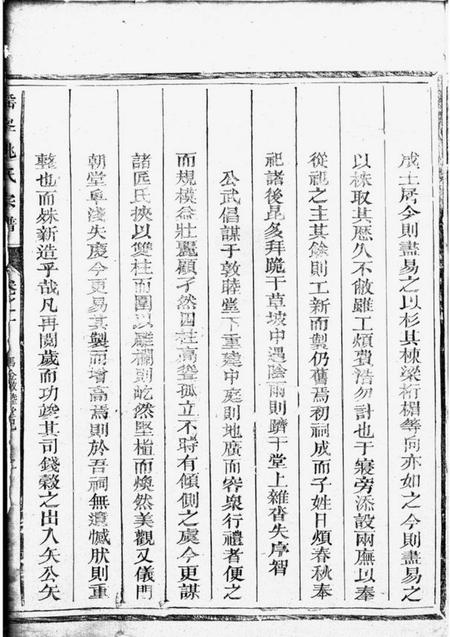 成土居今則盡易之以杉其棟梁桁楣等向亦如之今則盡易之
以株取其歷久不敝雖工煩費浩勿計也于寢旁添設兩廡以奉
從祀之主其餘則工新而製仍舊焉初祠成而子姓日煩春秋奉
祀諸後昆多拜跪于草坡中遇陰雨則躋于堂上雜沓失序智
公武倡謀于敦睦堂下重建中庭則地廣而容衆行禮者便之
而規模益壯麗顧孑然四柱高聳孤立不時有傾側之處今更謀
諸匠氏挾以雙柱而圍以雕襴則屹然堅楷而煥然美觀又儀門
朝堂卑淺失度今更易其製而增高焉則於吾祠無遺憾肰則重
整也而殊新造乎哉凡再閱歲而功竣其司錢穀之出入矢公矢
姚氏宗譜
卷之一